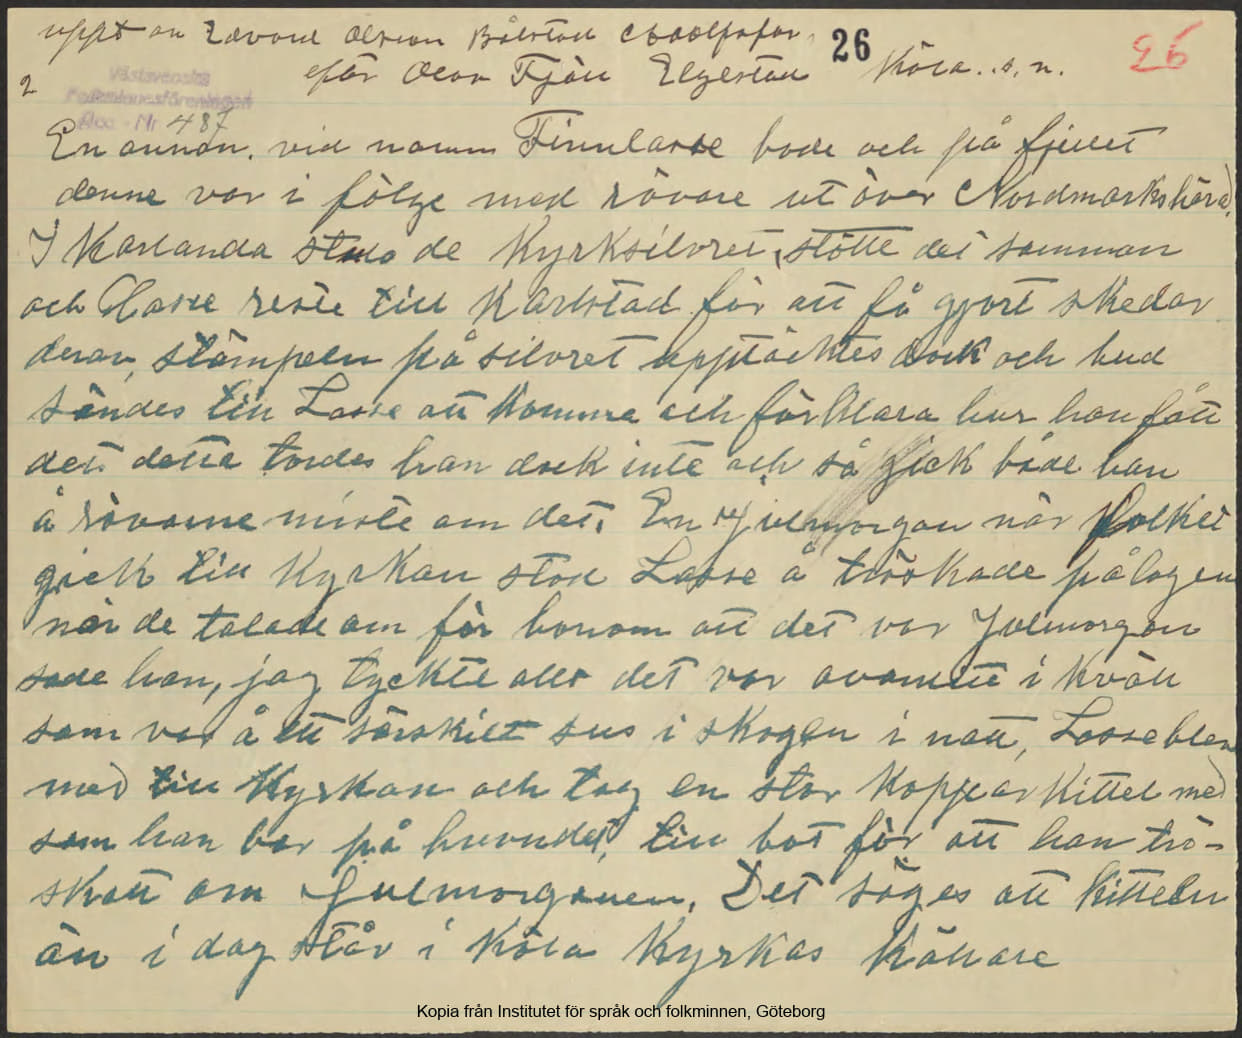 uppt av Edvard Olsson Bålstad Adolfsfors 26 26
2 efter Olov Fjäll Elgestad Köla. s. n.
Västsvenska
Folkminnesföreningen
Acc - Nr 487
En annan. vid namn Finnlasse bode och på fjellet
denne var i följe med rövare ut över Nordmarkshärad.
I Karlanda stulo de Kyrksilvret, stötte det samman
och Lasse reste till Karlstad för att få gjort skedar
derav, stämpeln på silvret upptäcktes dock och bud
sändes till Lasse att komma och förklara hur han fått
det. detta tordes han dock inte och så gick både han
å rövarne miste om det. En Julmorgon när folket
gick till Kyrkan stod Lasse å tröskade på logen
när de talade om för honom att det var Julmorgon
sade han, jag tyckte allt det var ovanlitt i kväll
som var å ett särskilt sus i skogen i natt, Lasse blev
med till Kyrkan och tog en stor Koppar Kittel med
som han bar på huvudet, till bot för att han trö-
skatt om Julmorgonen. Det säges att kitteln
än i dag står i Köla Kyrkas Källare
Kopia från Institutet för språk och folkminnen, Göteborg